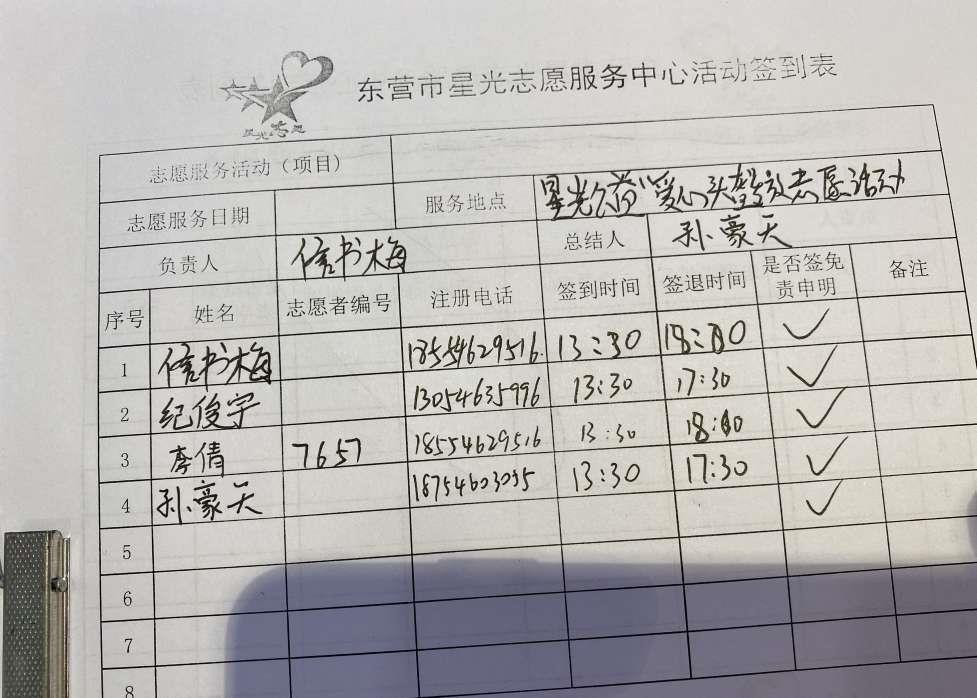 星光志愿
东营市星光志愿服务中心活动签到表
志愿服务活动（项目）
志愿服务日期 服务地点 星光公益"爱心头盔发放志愿活动
负责人 信书梅 总结人 孙豪天
序号 姓名 志愿者编号 注册电话 签到时间 签退时间 是否签免责申明 备注
1 信书梅 18554629516 13:30 18:00 ✓
2 纪俊宇 13054635996 13:30 17:30 ✓
3 李倩 7657 18554629516 13:30 18:00 ✓
4 孙豪天 18754603055 13:30 17:30 ✓
✓
5
6
7
8